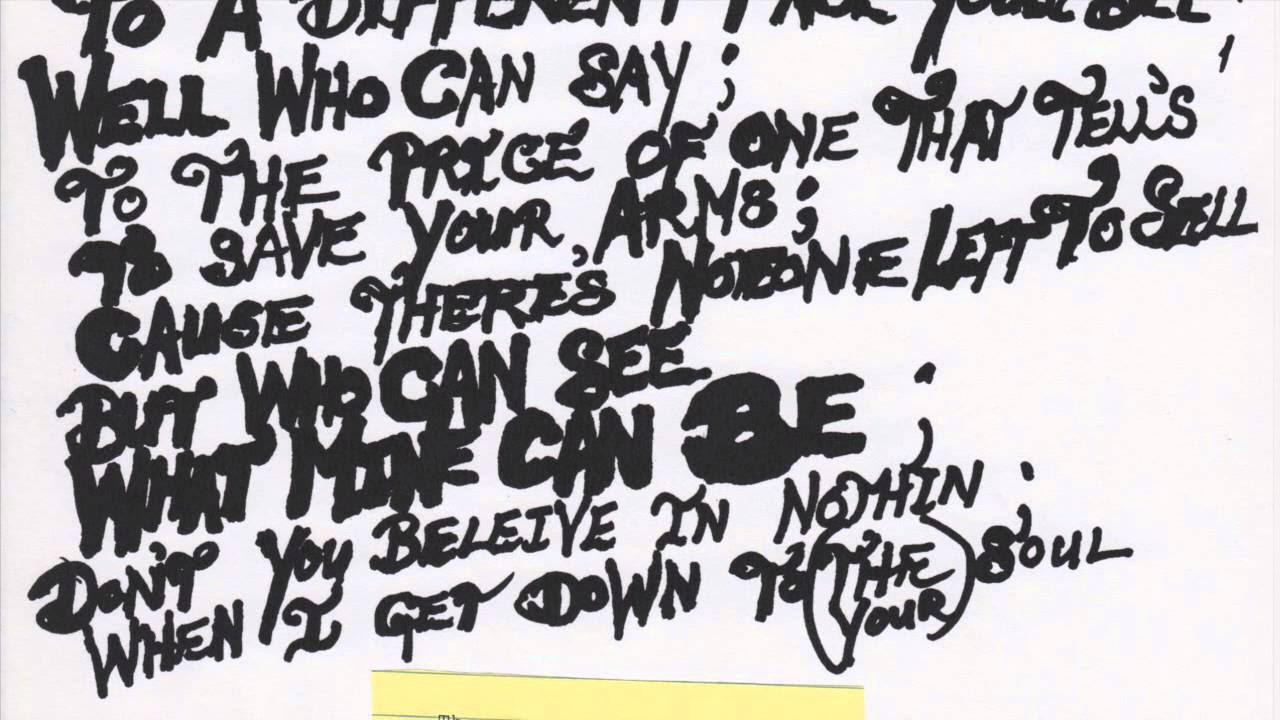 TO A DIFFERENT
WELL WHO CAN SAY;
TO THE PRICE OF ONE THAT TELL'S
TO SAVE YOUR, ARMS;
CAUSE THERE'S NOTONE LEFT TO SELL
BUT WHO CAN SEE
WHAT MINE CAN BE;
DON'T YOU BELEIVE IN NOTHIN;
WHEN I GET DOWN TO (THE YOUR) SOUL